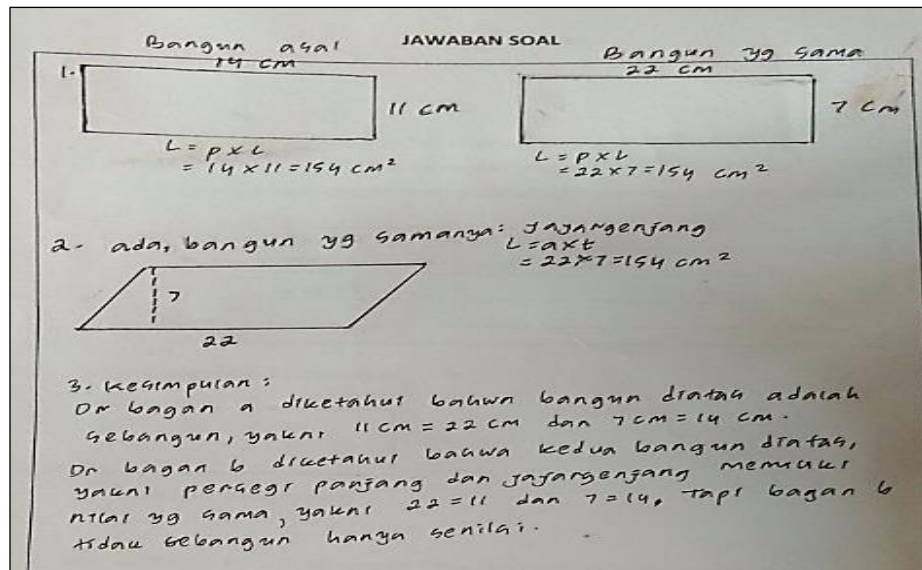 JAWABAN SOAL
Bangun asal
14 cm
Bangun yg sama
22 cm
1.
11 cm
7 cm
L = p x l
= 14 x 11 = 154 cm²
L = p x l
= 22 x 7 = 154 cm²
2. ada, bangun yg samanya: Jajargenjang
L = a x t
= 22 x 7 = 154 cm²
7
22
3. Kesimpulan :
Di bagan a diketahui bahwa bangun diatas adalah
sebangun, yakni 11 cm = 22 cm dan 7 cm = 14 cm.
Di bagan b diketahui bahwa kedua bangun diatas,
yakni persegi panjang dan jajargenjang memiliki
nilai yg sama, yakni 22 = 11 dan 7 = 14, tapi bagan b
tidak sebangun hanya senilai.